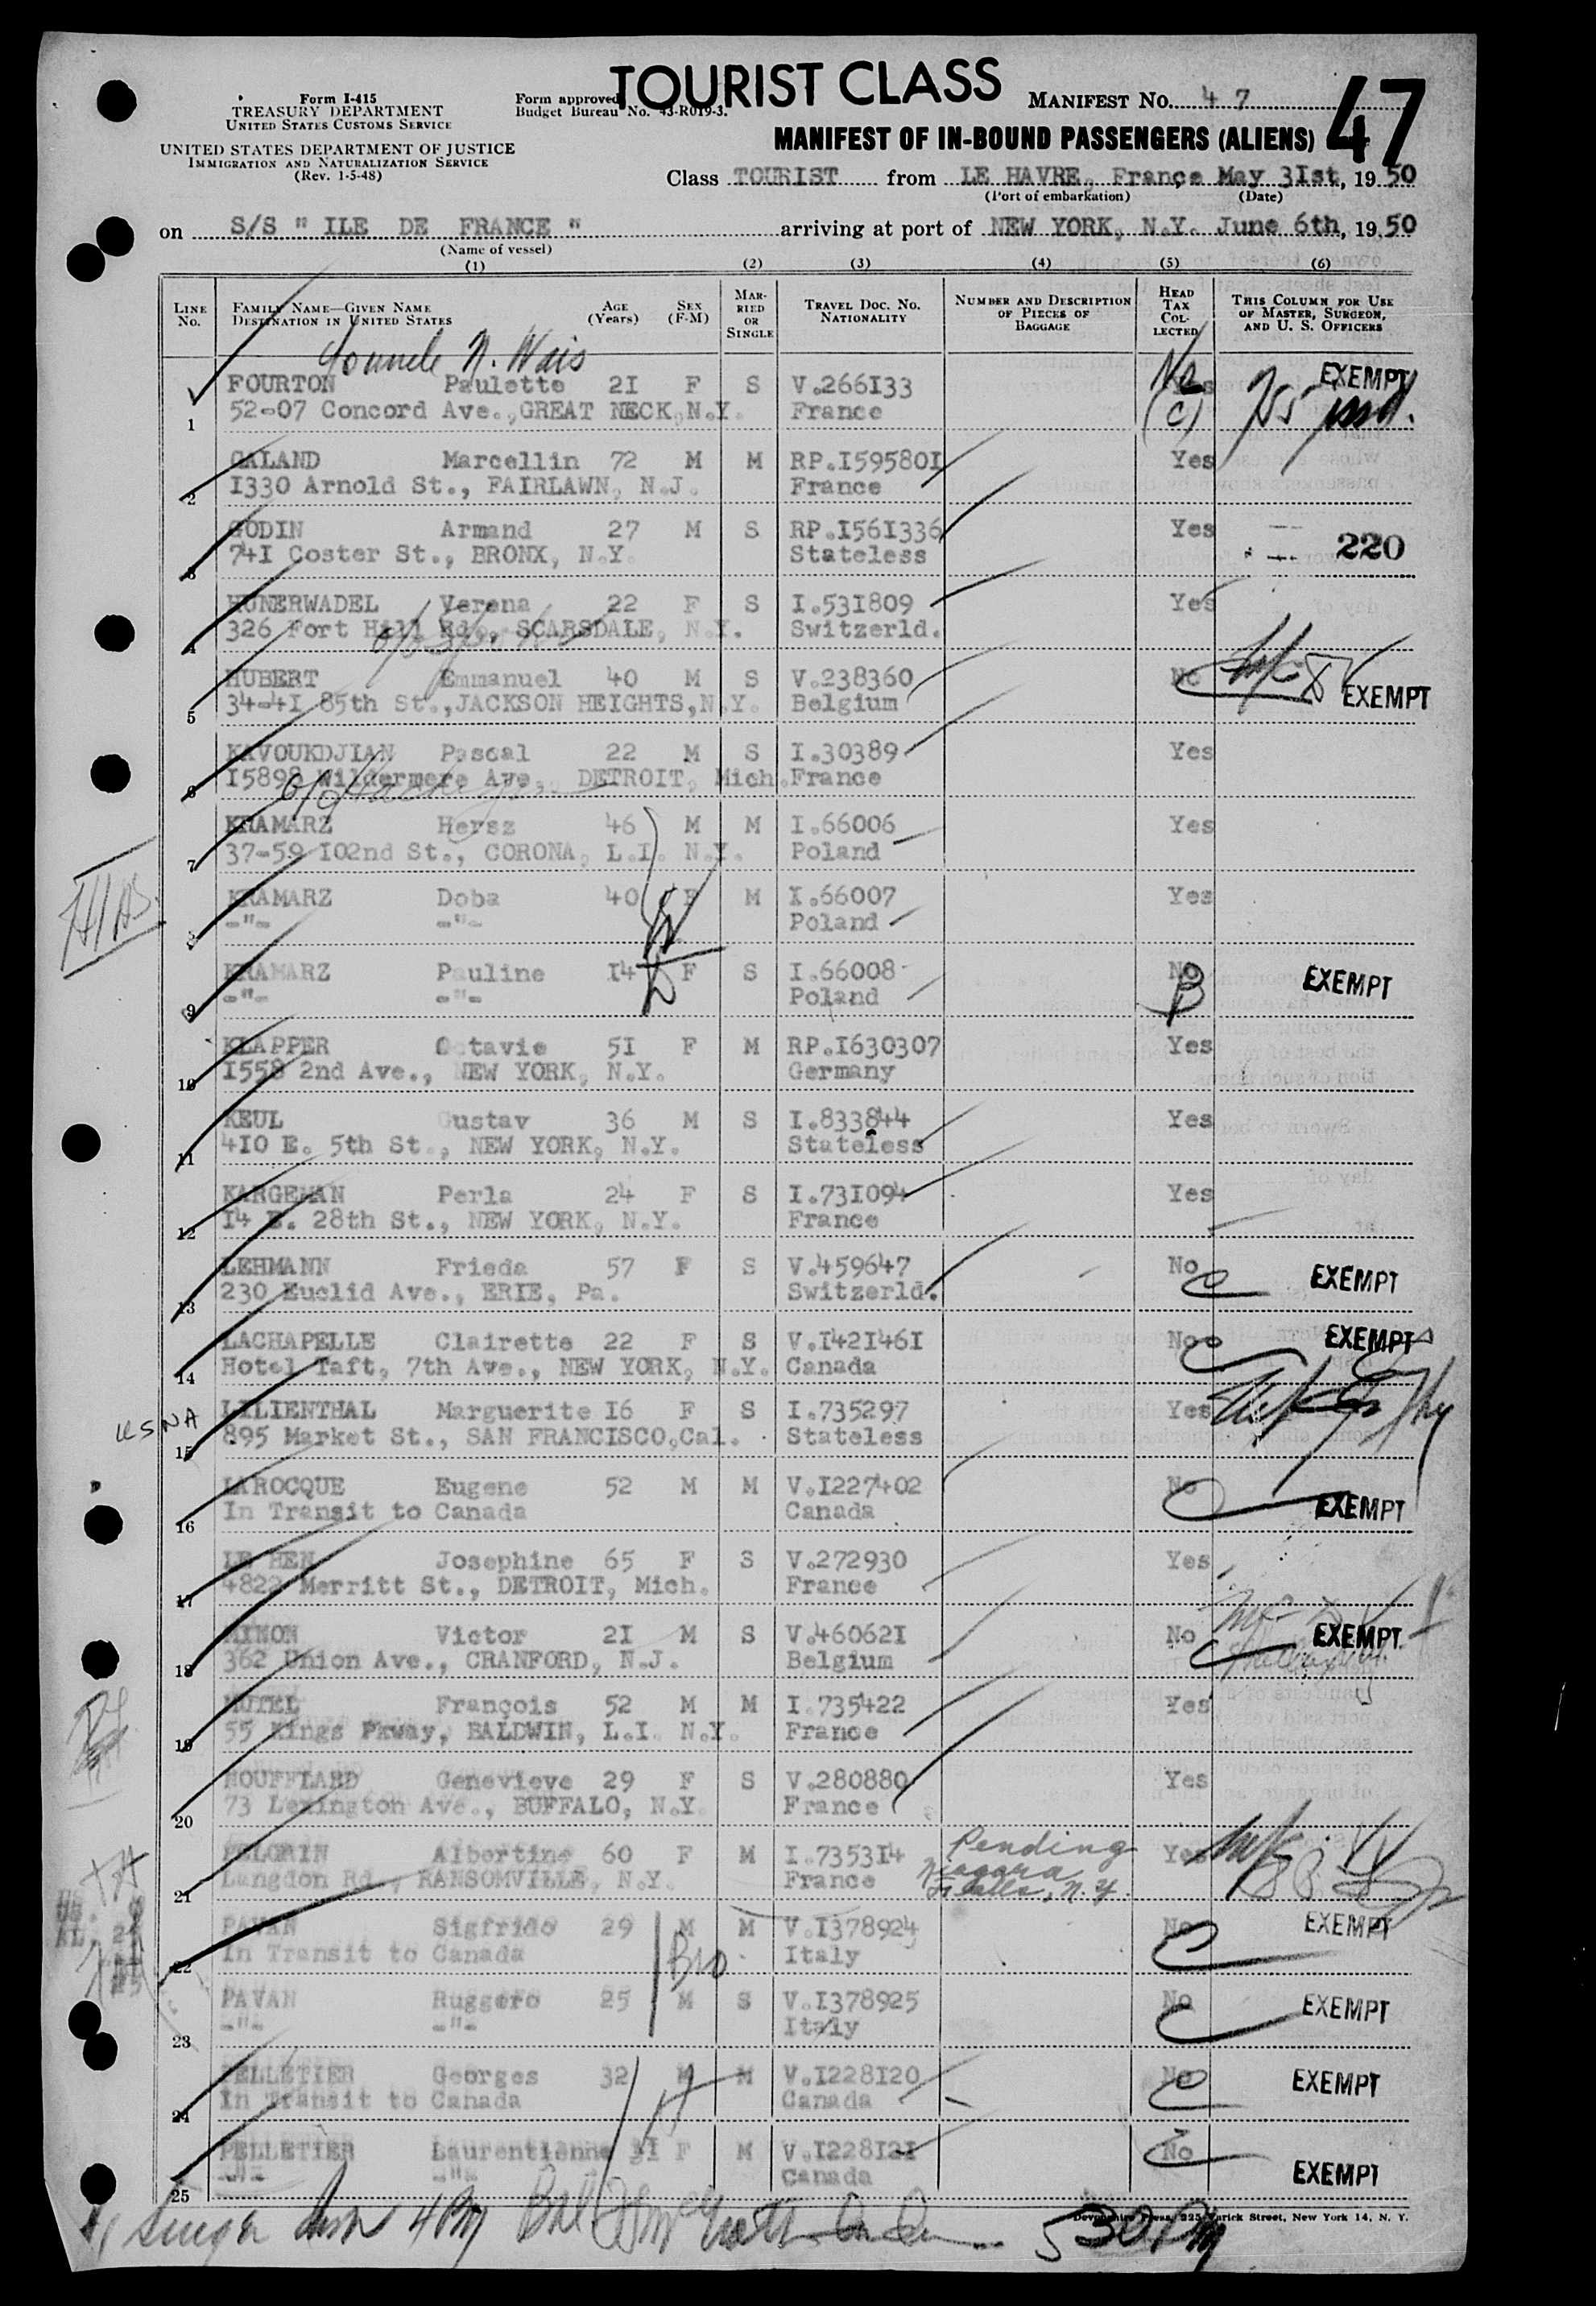 TOURIST CLASS
Form I-415
TREASURY DEPARTMENT
UNITED STATES CUSTOMS SERVICE
UNITED STATES DEPARTMENT OF JUSTICE
IMMIGRATION AND NATURALIZATION SERVICE
(Rev. 1-5-48)
Form approved
Budget Bureau No. 43-R019-3.
MANIFEST NO. 4 7
47
MANIFEST OF IN-BOUND PASSENGERS (ALIENS)
Class TOURIST from LE HAVRE, France May 3Ist, 19 50
(Port of embarkation) (Date)
on S/S " ILE DE FRANCE " arriving at port of NEW YORK, N.Y. June 6th, 19 50
(Name of vessel)
(1) (2) (3) (4) (5) (6)
LINE No. FAMILY NAME—GIVEN NAME DESTINATION IN UNITED STATES AGE (Years) SEX (F-M) MARRIED OR SINGLE TRAVEL DOC. NO. NATIONALITY NUMBER AND DESCRIPTION OF PIECES OF BAGGAGE HEAD TAX COLLECTED THIS COLUMN FOR USE OF MASTER, SURGEON, AND U. S. OFFICERS
N. Wais
FOURTON Paulette 2I F S V.266I33 No Yes EXEMPT
1 52-07 Concord Ave.,GREAT NECK,N.Y. France (C)
GALAND Marcellin 72 M M RP.I59580I Yes
2 I330 Arnold St., FAIRLAWN, N.J. France
GODIN Armand 27 M S RP.I56I336 Yes
3 74I Coster St., BRONX, N.Y. Stateless 220
HUNERWADEL Verena 22 F S I.53I809 Yes
4 326 Fort Hill Rd., SCARSDALE, N.Y. Switzerld.
HUBERT Emmanuel 40 M S V.238360 No
5 34-4I 85th St.,JACKSON HEIGHTS,N.Y. Belgium EXEMPT
KAVOUKDJIAN Pascal 22 M S I.30389 Yes
6 I5898 Wildermere Ave., DETROIT, Mich. France
KRAMARZ Hersz 46 M M I.66006 Yes
7 37-59 I02nd St., CORONA, L.I. N.Y. Poland
HIAS
KRAMARZ Doba 40 F M I.66007 Yes
8 -"- -"- Poland
KRAMARZ Pauline I4 F S I.66008 No EXEMPT
9 -"- -"- Poland B
KLAPPER Octavie 5I F M RP.I630307 Yes
10 I558 2nd Ave., NEW YORK, N.Y. Germany
KEUL Gustav 36 M S I.833844 Yes
11 4I0 E. 5th St., NEW YORK, N.Y. Stateless
KARGEMAN Perla 24 F S I.73I094 Yes
12 I4 E. 28th St., NEW YORK, N.Y. France
LEHMANN Frieda 57 F S V.459647 No EXEMPT
13 230 Euclid Ave., ERIE, Pa. Switzerld. C
LACHAPELLE Clairette 22 F S V.I42I46I No EXEMPT
14 Hotel Taft, 7th Ave., NEW YORK, N.Y. Canada
USNA
LILIENTHAL Marguerite I6 F S I.735297 Yes
15 895 Market St., SAN FRANCISCO,Cal. Stateless
LAROCQUE Eugene 52 M M V.I227402 No
16 In Transit to Canada Canada EXEMPT
LE HEN Josephine 65 F S V.272930 Yes
17 4822 Merritt St., DETROIT, Mich. France
Victor 2I M S V.46062I No EXEMPT
18 362 Union Ave., CRANFORD, N.J. Belgium C
MUTEL François 52 M M I.735422 Yes
19 55 Kings Pkway, BALDWIN, L.I. N.Y. France
NOUFFLARD Genevieve 29 F S V.280880 Yes
20 73 Lexington Ave., BUFFALO, N.Y. France
PELGRIN Albertine 60 F M I.7353I4 Pending Yes
21 Langdon Rd., RANSOMVILLE, N.Y. France Niagara Falls, N.Y.
PAVAN Sigfrido 29 M M V.I378924 No EXEMPT
22 In Transit to Canada Italy C
Bro
PAVAN Ruggero 25 M S V.I378925 No EXEMPT
23 -"- -"- Italy C
PELLETIER Georges 32 M M V.I228I20 No EXEMPT
24 In Transit to Canada Canada C
PELLETIER Laurentienne 3I F M V.I228I2I No
25 -"- -"- Canada EXEMPT
Devonshire Press, 225 Varick Street, New York 14, N. Y.
4 PM
530 PM